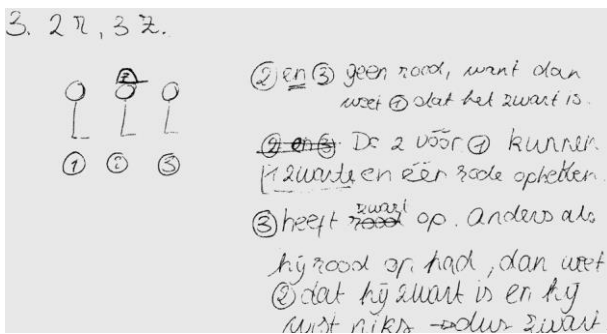 3. 2 r, 3 z.
z
① ② ③
② en ③ geen rood, want dan
weet ① dat het zwart is.
② en ③ De 2 vóór ① kunnen
zwarte en één rode ophebben.
③ heeft rood zwart op. Anders als
hij rood op had, dan weet
② dat hij zwart is en hij
wist niks → dus zwart